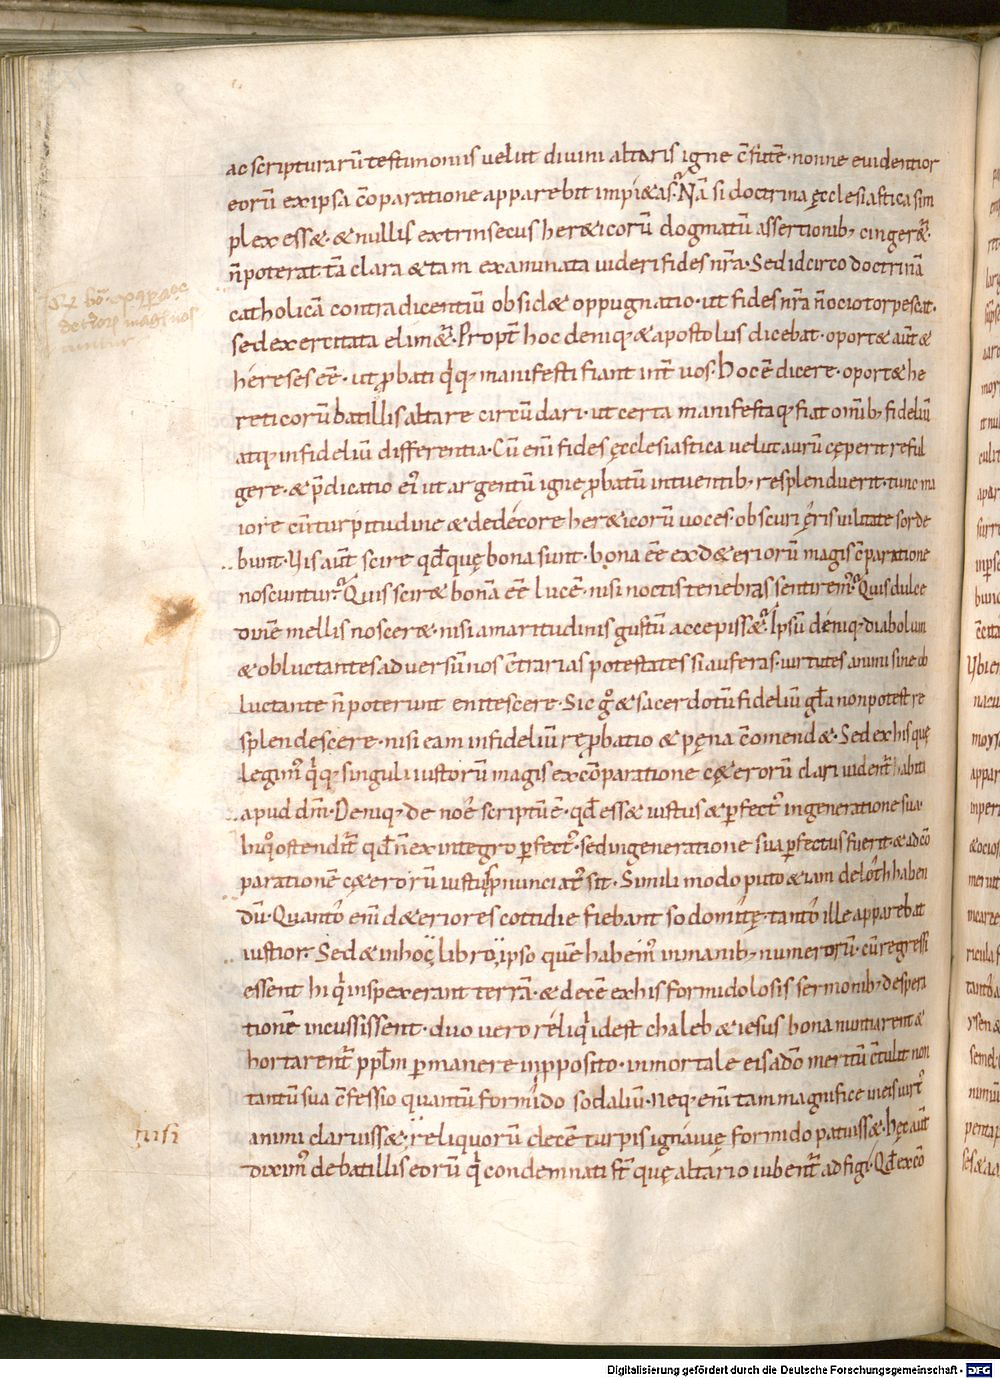 ac scripturarū testimoniis velut divini altaris igne c̄futē· nonne evidentior
eorū ex ipsa c̄paratione apparebit impi&as· Nā si doctrina ęcclesiastica sim
plex ess&· & nullis extrinsecus her&icorū dogmatū assertionib; cinger&ur·
n̄ poterat tā clara & tam examinata videri fides nr̄a· Sed idcirco doctrinā
catholicā contradicentiū obsid& oppugnatio· ut fides nr̄a n̄ ocio torpescat·
sed exercitata elim&ur· Propt̄ hoc deniq; & apostolus dicebat· oport& aut̄ &
hereses eē· ut pbati q'q; manifesti fiant int̄ vos· Hoc ē dicere· oport& he
reticorū batillis altare circūdari· ut certa manifestaq; fiat omīb; fideliū
atq; infideliū differentia· Cū enī fides ęcclesiastica velut aurū cęperit reful
gere· & p̄dicatio ei' ut argentū igne pbatū intuentib; resplenduerit· tunc ma
iore cū turpitudine & dedecore her&icorū voces· obscuri ęris vilitate sorde
bunt· Vis aut̄ scire qđ quę bona sunt· bona eē ex d&eriorū magis c̄paratione
noscuntur· Quis scir& bonā eē lucē· nisi noctis tenebras sentirem'· Quis dulce
dinē mellis noscer&· nisi amaritudinis gustū accepiss&· Ipsū deniq; diabolum
& obluctantes adversū nos c̄trarias potestates si auferas· virtutes animi sine ob
luctante n̄ poterunt enitescere· Sic g° & sacerdotū fideliū gła non potest re
splendescere· nisi eam infideliū repbatio & pęna c̄mend&· Sed ex his quę
legim' q'q; singuli iustorū magis ex cōparatione c&erorū clari vident' habiti
apud dm̄· Deniq; de noe scriptū ē· qđ ess& iustus & pfect' in generatione sua·
In quo ostendit' qđ n̄ ex integro pfect'· sed in generatione sua pfectus fuerit· & ad cō
parationē c&erorū iustus pnunciat' sit· Simili modo puto & iam de loth haben
dū· Quanto enī d&eriores cottidie fiebant sodomitę· tanto ille apparebat
iustior· Sed & in hoc libro ipso quē habem' in manib; numerorū· cū regressi
essent hi q' inspexerant terrā· & decē ex his formidolosis sermonib; despera
tionē incussissent· duo vero reliq' idest chaleb & iesus bona nuntiarent &
hortarent' pplm pmanere in pposito· inmortale eis ad dō meritū c̄tulit non
tantū sua c̄fessio quantū formido sodaliū· neq; enī tam magnifice in eis virt'
animi claruiss&· reliquorū decē turpis ignavię formido patuiss&· Hęc aut̄
diximus de batillis eorū q' condemnati st̄ quę altario iubent' adfigi· Qđ ex cō
nisi